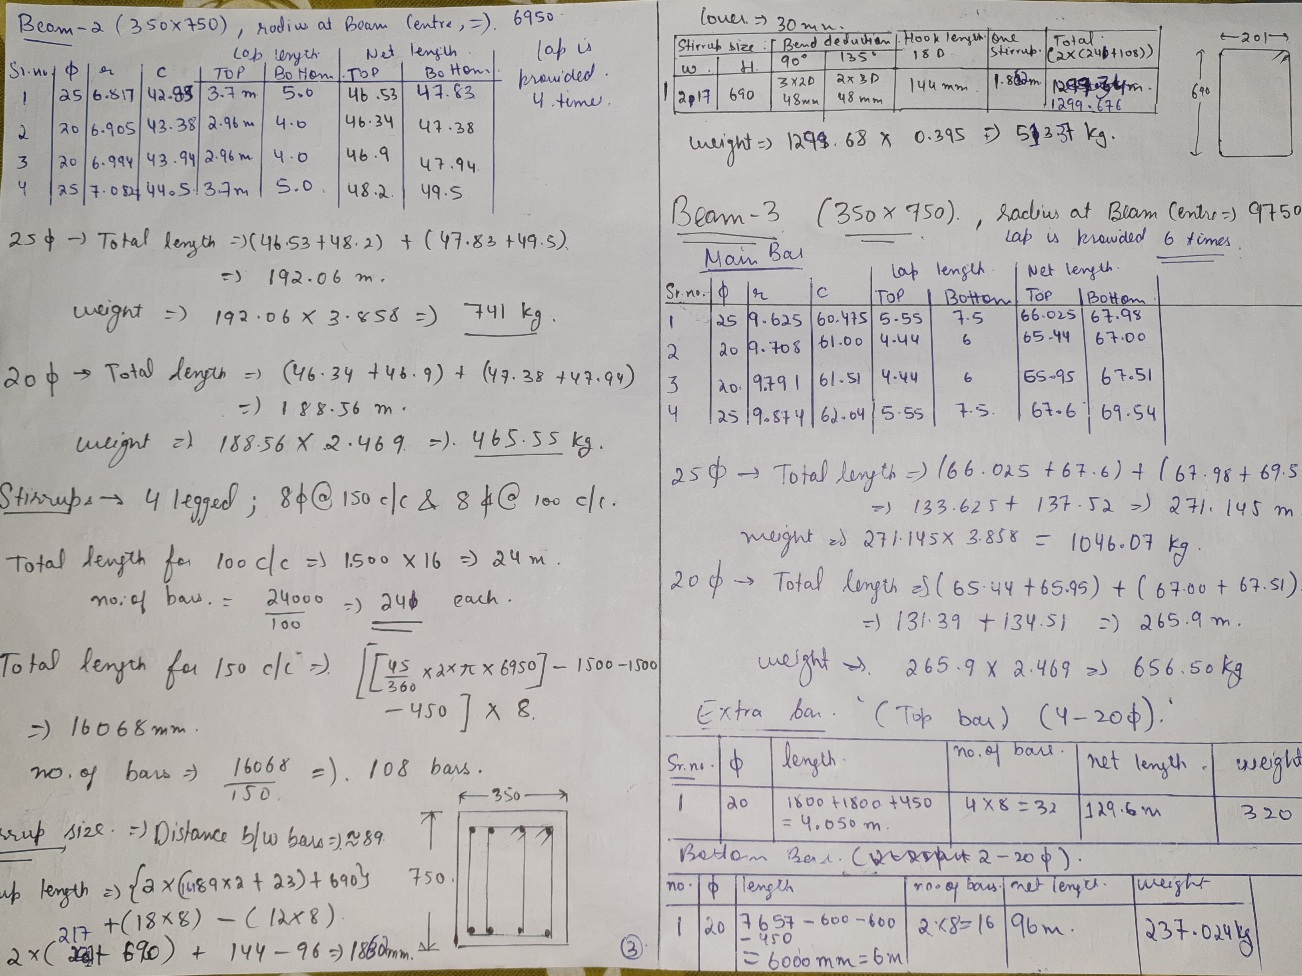 Beam-2 (350x750), radius at Beam Centre, =). 6950.
Lap length Net length
Sr.no ϕ r C TOP Bottom TOP Bottom
1 25 6.817 42.83 3.7m 5.0 46.53 47.83
2 20 6.905 43.38 2.96m 4.0 46.34 47.38
3 20 6.994 43.94 2.96m 4.0 46.9 47.94
4 25 7.082 44.5 3.7m 5.0 48.2 49.5
Lap is
provided.
4 time.
25ϕ → Total length =) (46.53+48.2) + (47.83+49.5).
=) 192.06 m.
weight =) 192.06 x 3.858 =) 741 kg.
20ϕ → Total length =) (46.34 +46.9) + (47.38 +47.94)
=) 188.56 m.
weight =) 188.56 x 2.469 =). 465.55 kg.
Stirrups → 4 legged; 8ϕ@150 c/c & 8ϕ@ 100 c/c.
Total length for 100 c/c =) 1500 x 16 =) 24 m.
no. of bars. = 24000/100 =) 240 each.
Total length for 150 c/c =) [[45/360 x2xπx6950] - 1500-1500
- 450] x 8.
=) 16068 mm.
no. of bars =) 16068/150 =). 108 bars.
size. =) Distance b/w bars =) ≈ 89
length =) {2x(89x2 + 23)+690}
+(18x8) - (12x8)
217
2x( + 690) + 144 - 96 =) 1862mm.
350
750.
③
Cover. =) 30 mm.
Stirrup size Bend deduction Hook length One Total
W. H. 90° 135° 18 D stirrup. (2x(240+108))
1 217 690 3x2D 2x3D 144 mm 1.862m
48mm 48 mm 1299.676
201
690
weight =) 1299.68 x 0.395 =) 513.37 kg.
Beam-3 (350x750)., radius at Beam Centre =) 9750
Lap is provided 6 times.
Main Bar
Lap length Net length
Sr.no. ϕ r C TOP Bottom TOP Bottom
1 25 9.625 60.475 5.55 7.5 66.025 67.98
2 20 9.708 61.00 4.44 6 65.44 67.00
3 20 9.791 61.51 4.44 6 65.95 67.51
4 25 9.874 62.04 5.55 7.5. 67.6 69.54
25ϕ → Total length =) (66.025 +67.6) + (67.98+69.5
=) 133.625 + 137.52 =) 271.145 m
weight =) 271.145x 3.858 = 1046.07 kg.
20ϕ → Total length =) (65.44+65.95) + (67.00 + 67.51).
=) 131.39 + 134.51 =) 265.9 m.
weight =). 265.9 x 2.469 =) 656.50kg
Extra bar. (Top bar) (4-20ϕ).
Sr.no. ϕ length. no. of bars. net length. weight
1 20 1800+1800+450 4x8=32 129.6m 320
= 4.050 m.
Bottom Bar. ( 2-20ϕ).
no. ϕ length no. of bars net length. weight
1 20 7657-600-600 2x8=16 96m. 237.024kg
- 450
= 6000 mm = 6m